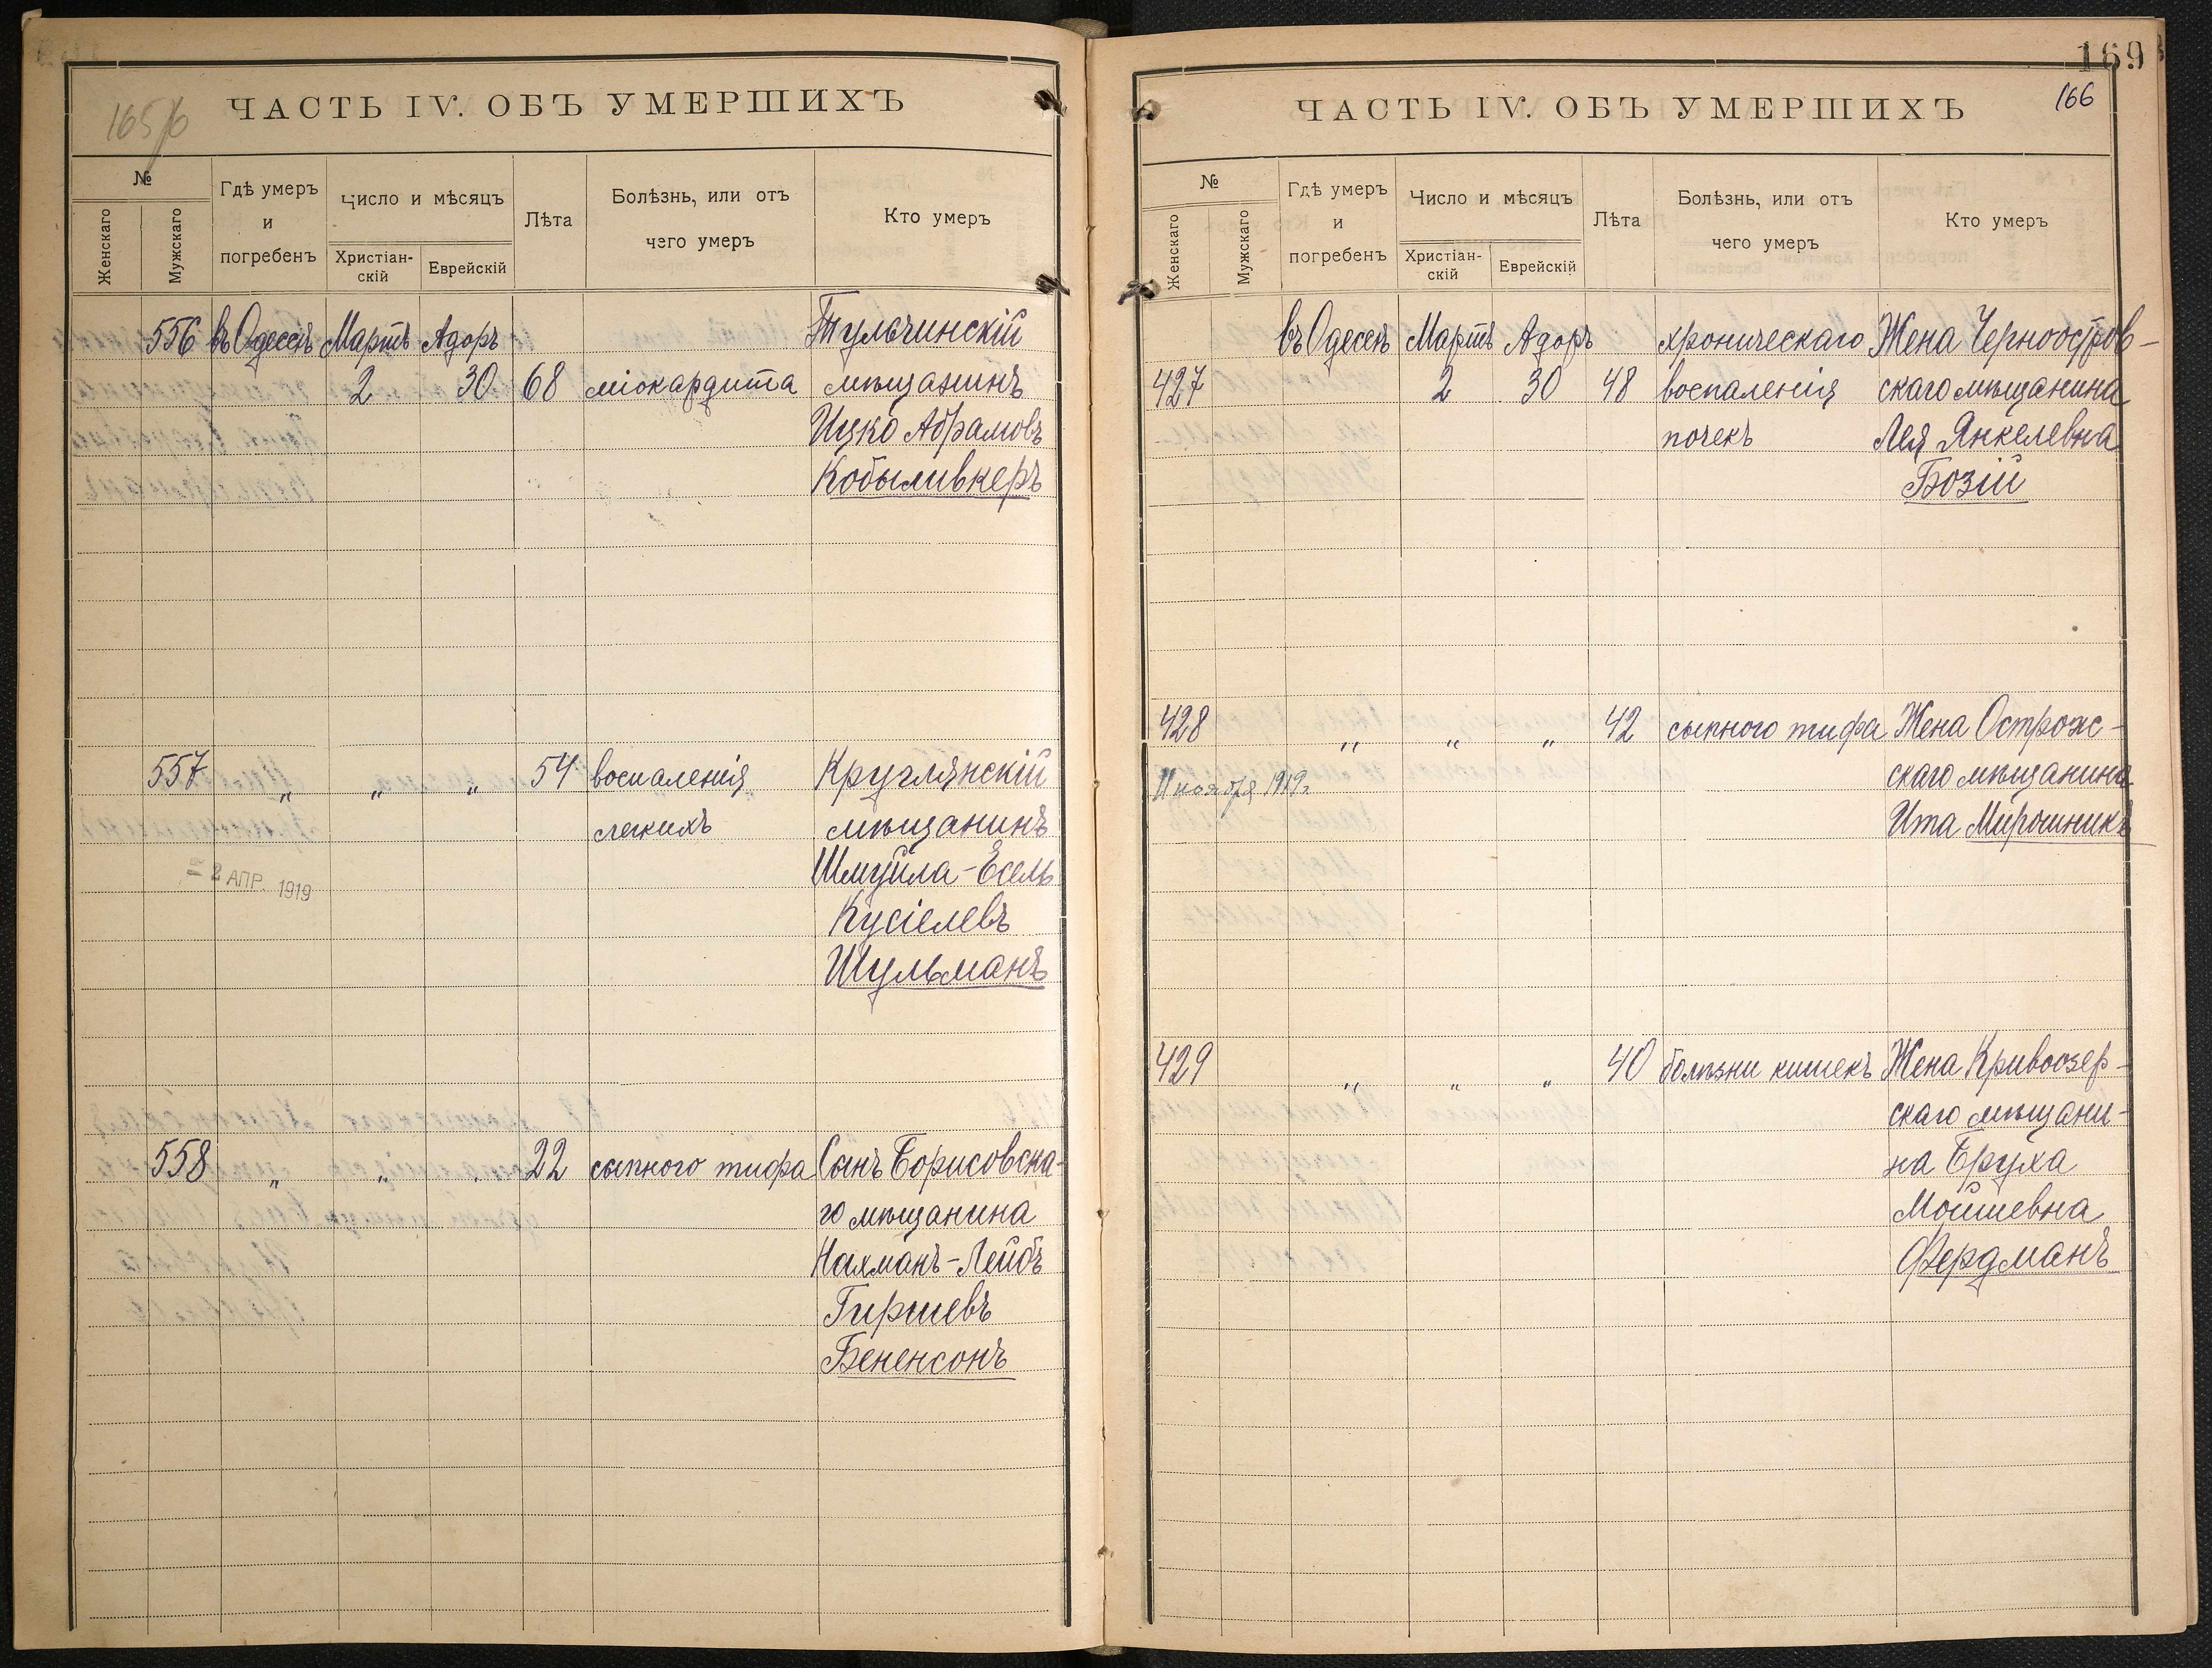 165/6
ЧАСТЬ IV. ОБЪ УМЕРШИХЪ
№
Женскаго
Мужскаго
Гдѣ умеръ
и
погребенъ
Число и мѣсяцъ
Христіан-
скій
Еврейскій
Лѣта
Болѣзнь, или отъ
чего умеръ
Кто умеръ
556 въ Одессѣ Мартъ Адоръ Тульчинскій
2 30 68 міокардита мѣщанинъ
Ицко Абрамовъ
Кобыливкеръ
557 „ „ „ 54 воспаленія Круглянскій
легкихъ мѣщанинъ
= 2 АПР. 1919
Шмуйла-Есель
Кусіелевъ
Шульманъ
558 „ „ „ 22 сыпного тифа Сынъ Борисовска-
го мѣщанина
Нахманъ-Лейбъ
Гиршевъ
Бененсонъ
169
166
ЧАСТЬ IV. ОБЪ УМЕРШИХЪ
№
Женскаго
Мужскаго
Гдѣ умеръ
и
погребенъ
Число и мѣсяцъ
Христіан-
скій
Еврейскій
Лѣта
Болѣзнь, или отъ
чего умеръ
Кто умеръ
въ Одессѣ Мартъ Адоръ хроническаго Жена Черноостров-
427 2 30 48 воспаленія скаго мѣщанина
почекъ Лея Янкелевна
Бозій
428 „ „ „ 42 сыпного тифа Жена Острож-
11 ноября 1919г. скаго мѣщанина
Ита Мирошникъ
429 „ „ „ 40 болѣзни кишекъ Жена Кривоозер-
скаго мѣщани-
на Бруха
Мойшевна
Фердманъ